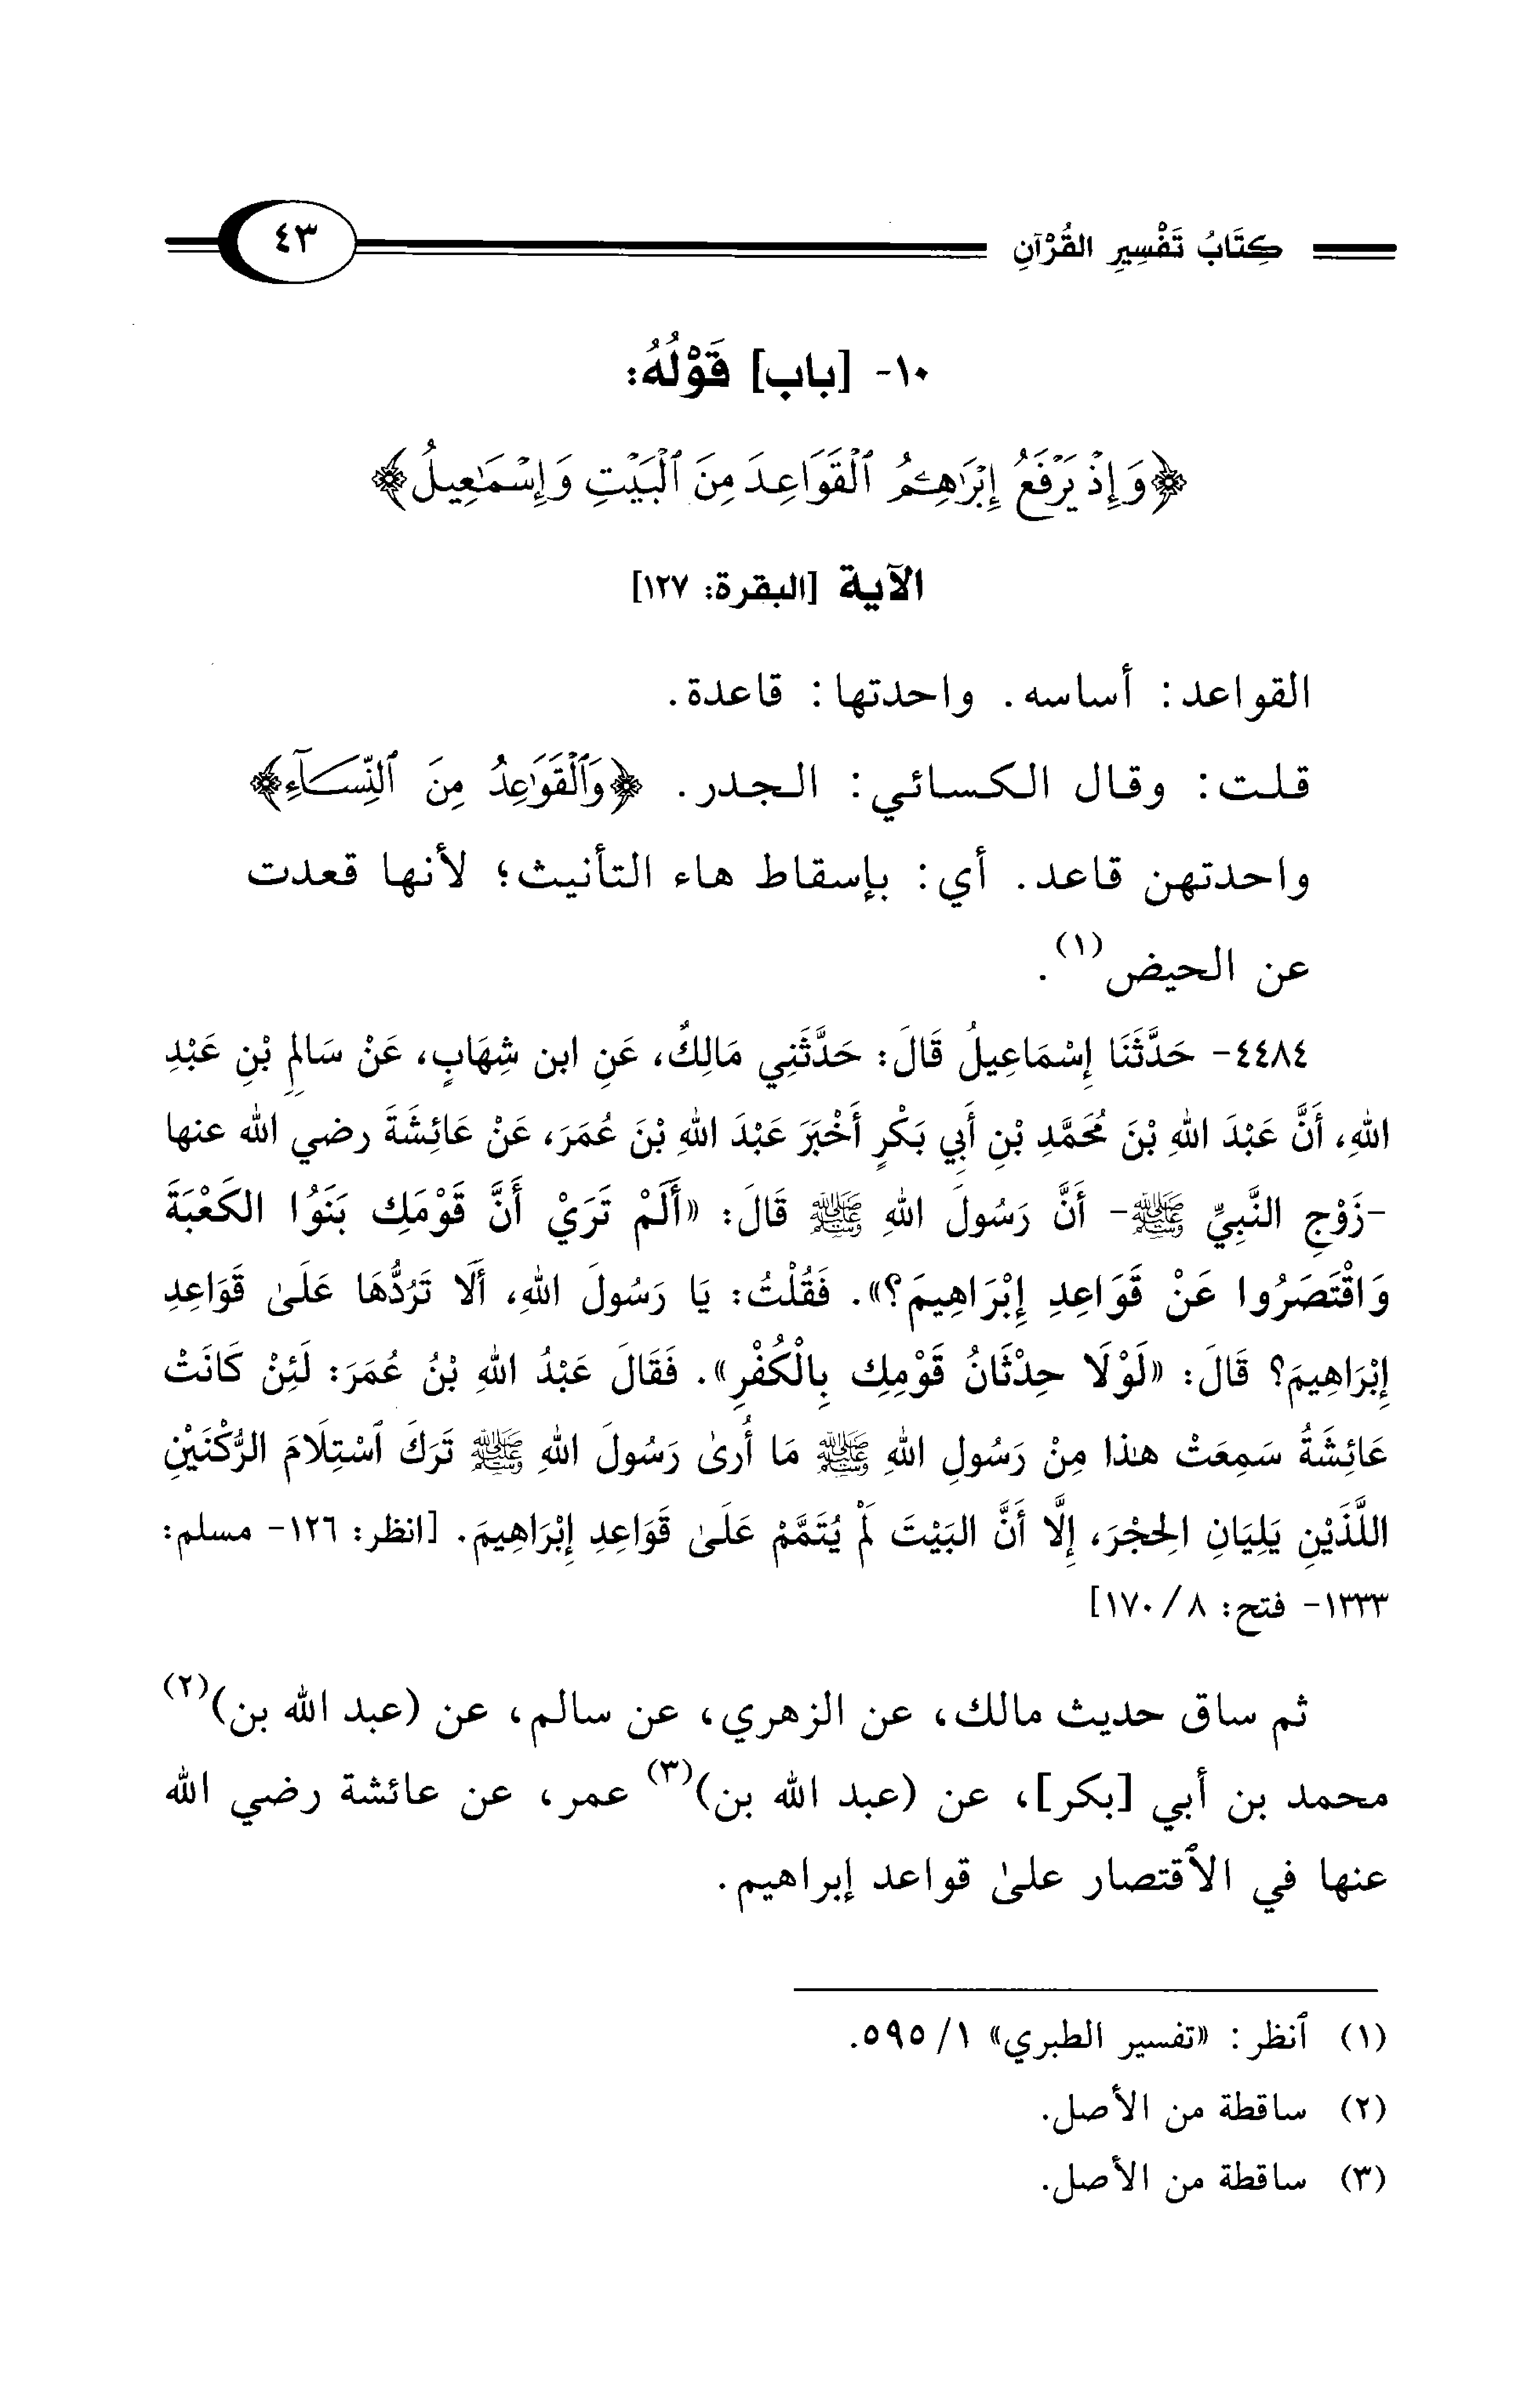 كِتَابُ تَفْسِيرِ القُرْآنِ ٤٣
١٠- [باب] قَوْلُهُ:
﴿وَإِذْ يَرْفَعُ إِبْرَاهِيمُ ٱلْقَوَاعِدَ مِنَ ٱلْبَيْتِ وَإِسْمَاعِيلُ﴾
الآية [البقرة: ١٢٧]
القواعد: أساسه. واحدتها: قاعدة.
قلت: وقال الكسائي: الجدر. ﴿وَٱلْقَوَاعِدُ مِنَ ٱلنِّسَآءِ﴾
واحدتهن قاعد. أي: بإسقاط هاء التأنيث؛ لأنها قعدت
عن الحيض(١).
٤٤٨٤- حَدَّثَنَا إِسْمَاعِيلُ قَالَ: حَدَّثَنِي مَالِكٌ، عَنِ ابن شِهَابٍ، عَنْ سَالِمِ بْنِ عَبْدِ
اللهِ، أَنَّ عَبْدَ اللهِ بْنَ مُحَمَّدِ بْنِ أَبِي بَكْرٍ أَخْبَرَ عَبْدَ اللهِ بْنَ عُمَرَ، عَنْ عَائِشَةَ رضي الله عنها
-زَوْجِ النَّبِيِّ ﷺ- أَنَّ رَسُولَ اللهِ ﷺ قَالَ: «أَلَمْ تَرَيْ أَنَّ قَوْمَكِ بَنَوُا الكَعْبَةَ
وَاقْتَصَرُوا عَنْ قَوَاعِدِ إِبْرَاهِيمَ؟». فَقُلْتُ: يَا رَسُولَ اللهِ، أَلَا تَرُدُّهَا عَلَىٰ قَوَاعِدِ
إِبْرَاهِيمَ؟ قَالَ: «لَوْلَا حِدْثَانُ قَوْمِكِ بِالْكُفْرِ». فَقَالَ عَبْدُ اللهِ بْنُ عُمَرَ: لَئِنْ كَانَتْ
عَائِشَةُ سَمِعَتْ هذا مِنْ رَسُولِ اللهِ ﷺ مَا أُرىٰ رَسُولَ اللهِ ﷺ تَرَكَ ٱسْتِلَامَ الرُّكْنَيْنِ
اللَّذَيْنِ يَلِيَانِ الِحجْرَ، إِلَّا أَنَّ البَيْتَ لَمْ يُتَمَّمْ عَلَىٰ قَوَاعِدِ إِبْرَاهِيمَ. [انظر: ١٢٦- مسلم:
١٣٣٣- فتح: ٨/ ١٧٠]
ثم ساق حديث مالك، عن الزهري، عن سالم، عن (عبد الله بن)(٢)
محمد بن أبي [بكر]، عن (عبد الله بن)(٣) عمر، عن عائشة رضي الله
عنها في الٱقتصار علىٰ قواعد إبراهيم.
(١) ٱنظر: «تفسير الطبري» ١/ ٥٩٥.
(٢) ساقطة من الأصل.
(٣) ساقطة من الأصل.